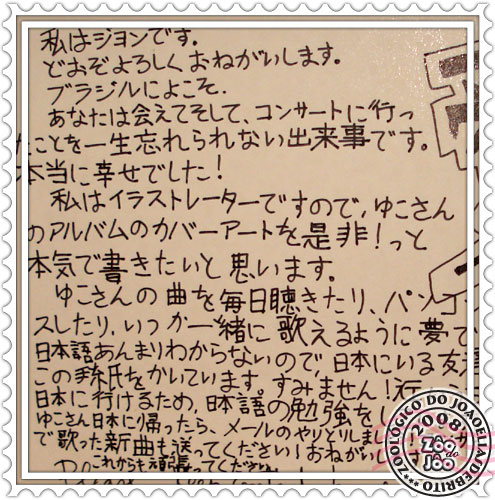 私はジョンです。
どおぞよろしくおねがいします。
ブラジルによこそ.
あなたは会えてそして、コンサートに行っ
たことを一生忘れられない出来事です。
本当に幸せでした!
私はイラストレーターですので,ゆこさん
のアルバムのカバーアートを是非!っと
本気で書きたいと思います。
ゆこさんの曲を毎日聴きたり、
スしたり,いつか一緒に歌えるように夢で
日本語あんまりわからないので,日本にいる友
この手紙をかいています。すみません!
日本に行けるため,日本語の勉強を
ゆこさん日本に帰ったら、メールのやりとりしまし
で歌った新曲も送ってください!おねがいし
これからも頑張ってください
ZOOLOGICO DO JOAOELIADEBRITO
2008
Zoo
do
Joo